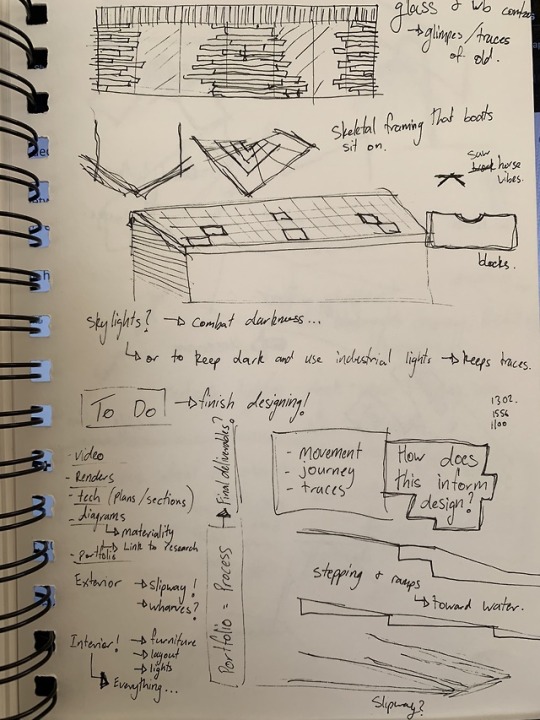 glass & wb contras
→ glimpses/traces
of old.
Skeletal framing that boats
sit on.
saw
horse
vibes.
blocks.
Skylights? → combat darkness...
↳ or to keep dark and use industrial lights → keeps traces.
To Do → finish designing!
1302.
1556
1100
- video
- Renders
- tech (plans/sections)
- diagrams
↳ materiality
↳ Link to research
- Portfolio
Exterior → slipway!
→ wharves?
Interior! → furniture
→ layout
→ lights
↳ Everything...
Portfolio = Process → Final deliverables?
- movement
- journey
- traces
How does
this inform
design?
stepping & ramps
↳ toward water.
Slipway?